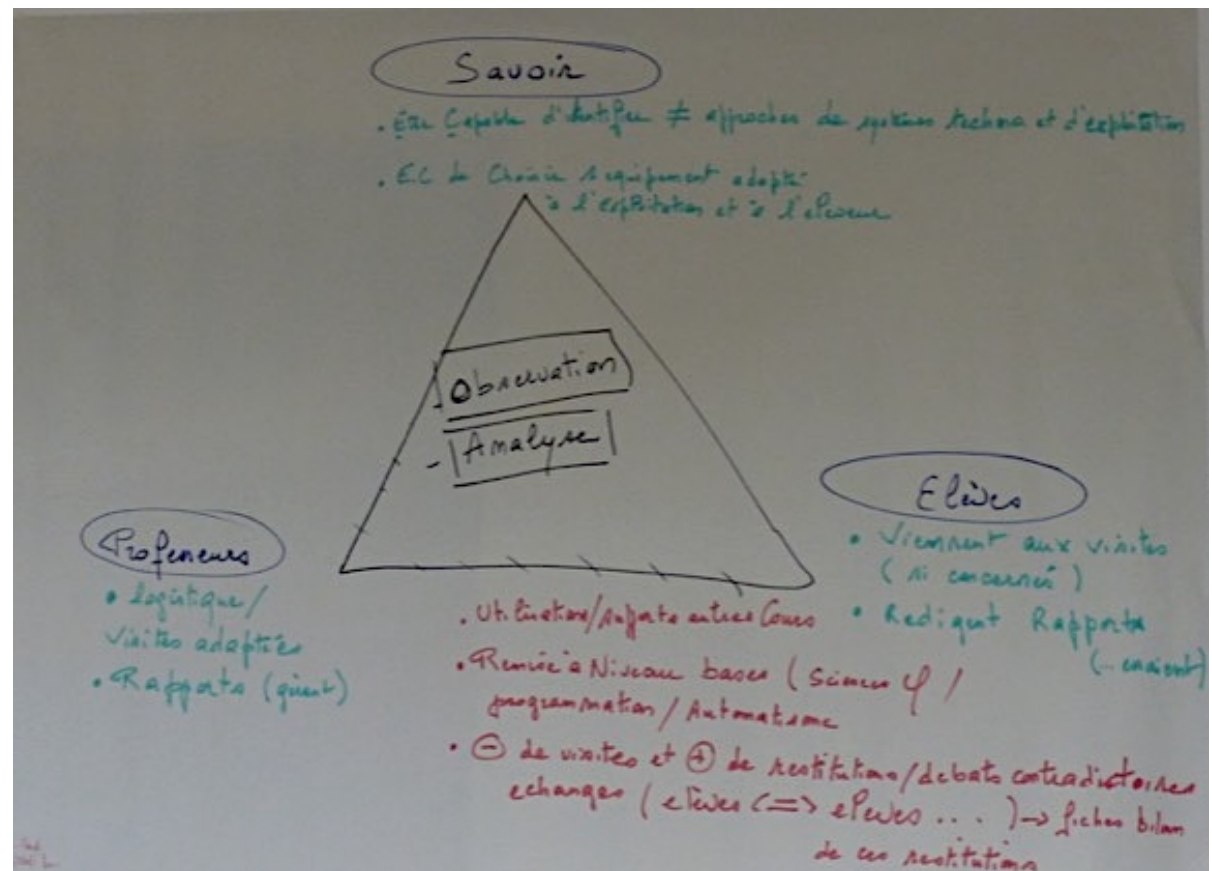 Savoir
. Etre Capable d'identifier ≠ approches de systèmes techno et d'exploitation
. E.C de Choisir 1 equipement adapté
à l'exploitation et à l'eleveur
- Observation
- Analyse
Professeurs
• logistique/
visites adaptées
• Rapports (
Elèves
• Viennent aux visites
(si concernés)
• Redigent Rapports
(...
. Utilisation/supports autres Cours
. Remise à Niveau bases (Sciences φ /
programmation / Automatisme
. ⊖ de visites et ⊕ de restitutions/debats contradictoires
echanges (elèves <=> elèves ...) → fiches bilan
de ces restitutions